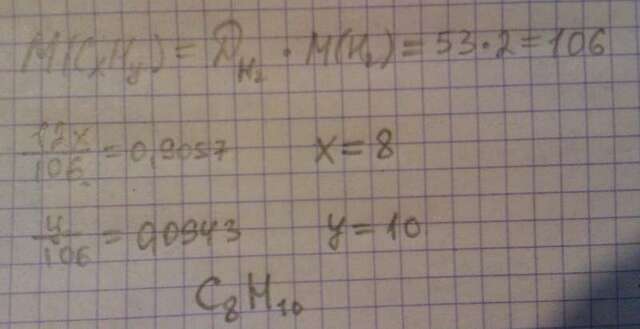 M(CxHy) = D_H₂ · M(H₂) = 53·2 = 106
12x/106 = 0,9057 x = 8
y/106 = 0,0943 y = 10
C₈H₁₀